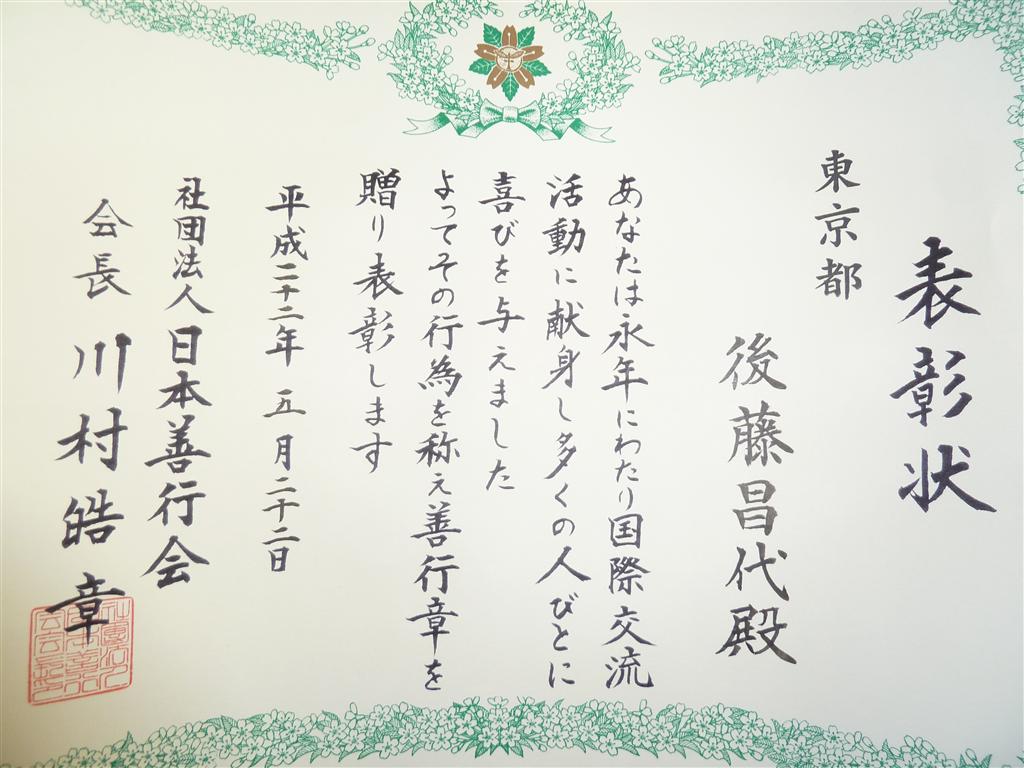 表彰状
東京都
後藤昌代殿
あなたは永年にわたり国際交流
活動に献身し多くの人びとに
喜びを与えました
よってその行為を称え善行章を
贈り表彰します
平成二十二年五月二十二日
社団法人日本善行会
会長川村皓章